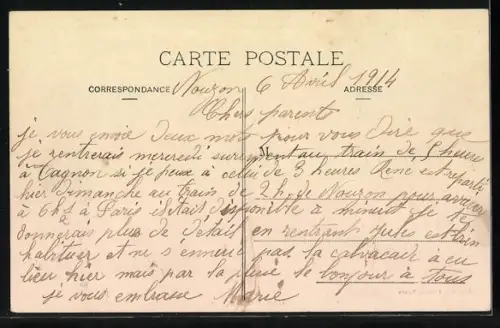 CARTE POSTALE
CORRESPONDANCE
ADRESSE
Nouzon 6 Avril 1914
Chers parents
je vous envoie deux mots pour vous dire que
je rentrerais mercredi surement au train de 5 heures
à Cagnon si je peux à celui de 3 heures René est reparti
hier Dimanche au train de 2h. de Nouzon pour arriver
à 6h½ à Paris était disponible à minuit je te
donnerais plus de détail en rentrant Jules est bien
habituer et ne s'ennuie pas la cavalcade à eu
lieu hier mais par la pluie le bonjour à tous
je vous embrasse Marie